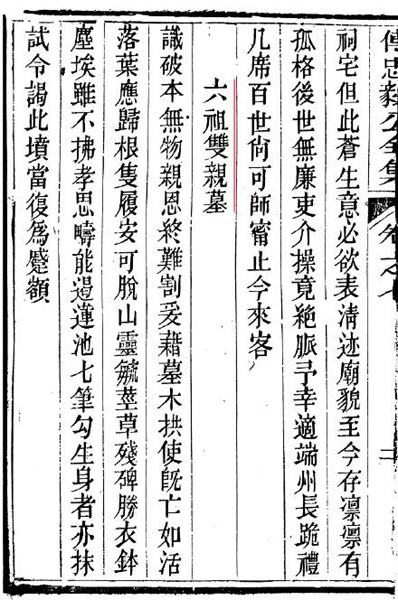 傅忠毅公全集 卷之七
祠宅但此蒼生意必欲表淸迹廟貌至今存凛凛有
孤格後世無廉吏介操竟絶脈予幸適端州長跪禮
几席百世尙可師甯止今來客
六祖雙親墓
識破本無物親恩終難割爰藉墓木拱使旣亡如活
落葉應歸根隻履安可脫山靈毓莖草殘碑勝衣鉢
塵埃雖不拂孝思疇能遏蓮池七筆勾生身者亦抹
試令謁此墳當復爲蹙額